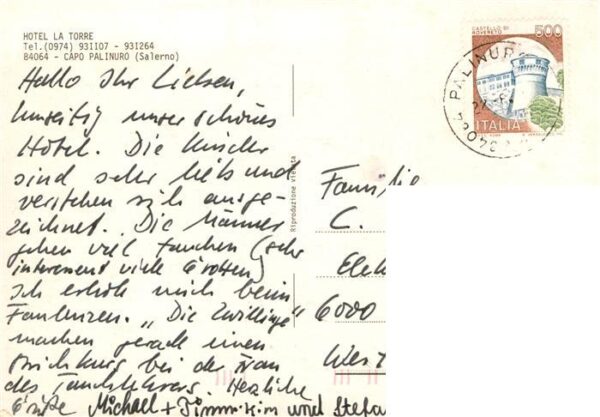 HOTEL LA TORRE
Tel.(0974) 931107 - 931264
84064 - CAPO PALINURO (Salerno)
Hallo Ihr Lieben,
umseitig unser schönes
Hotel. Die Kinder
sind sehr lieb und
verstehen sich ausge-
zeichnet. Die Männer
gehen viel tauchen (sehr
interessant viele Grotten)
Ich erhole mich beim
Faulenzen. "Die Zwillinge"
machen gerade einen
bei der Frau
des Tauchlehrers. Herzliche
Grüße Michael + Timm + Kim und Stefan
Riproduzione vietata
Familie
C.
6000
West
CASTELLO DI
ROVERETO
500
ITALIA
PALINURO